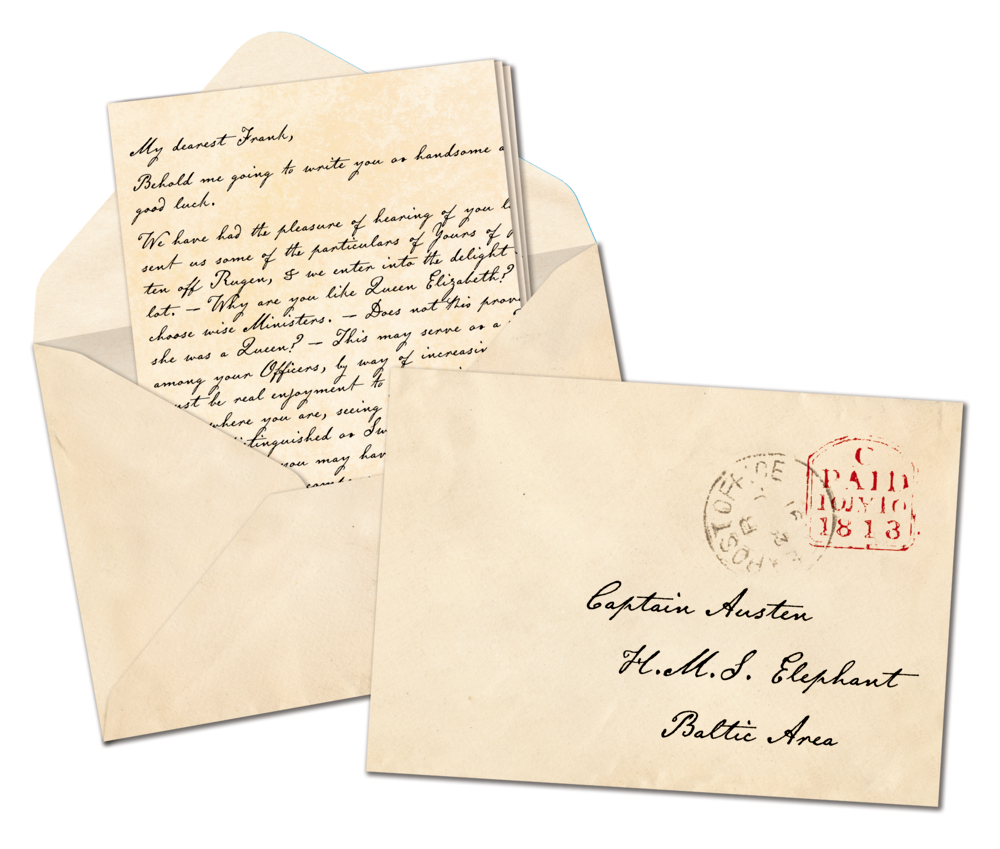 My dearest Frank,
Behold me going to write you as handsome a
good luck.
We have had the pleasure of hearing of you
sent us some of the particulars of Yours of
ten off Rugen, & we enter into the delight
lot. — Why are you like Queen Elizabeth?
choose wise Ministers. — Does not this prov
she was a Queen? — This may serve as a
among your Officers, by way of increasin
ust be real enjoyment to
where you are, seeing
istinguished as Sw
you may hav
POST OFFICE
C
PAID
1813
Captain Austen
H.M.S. Elephant
Baltic Area